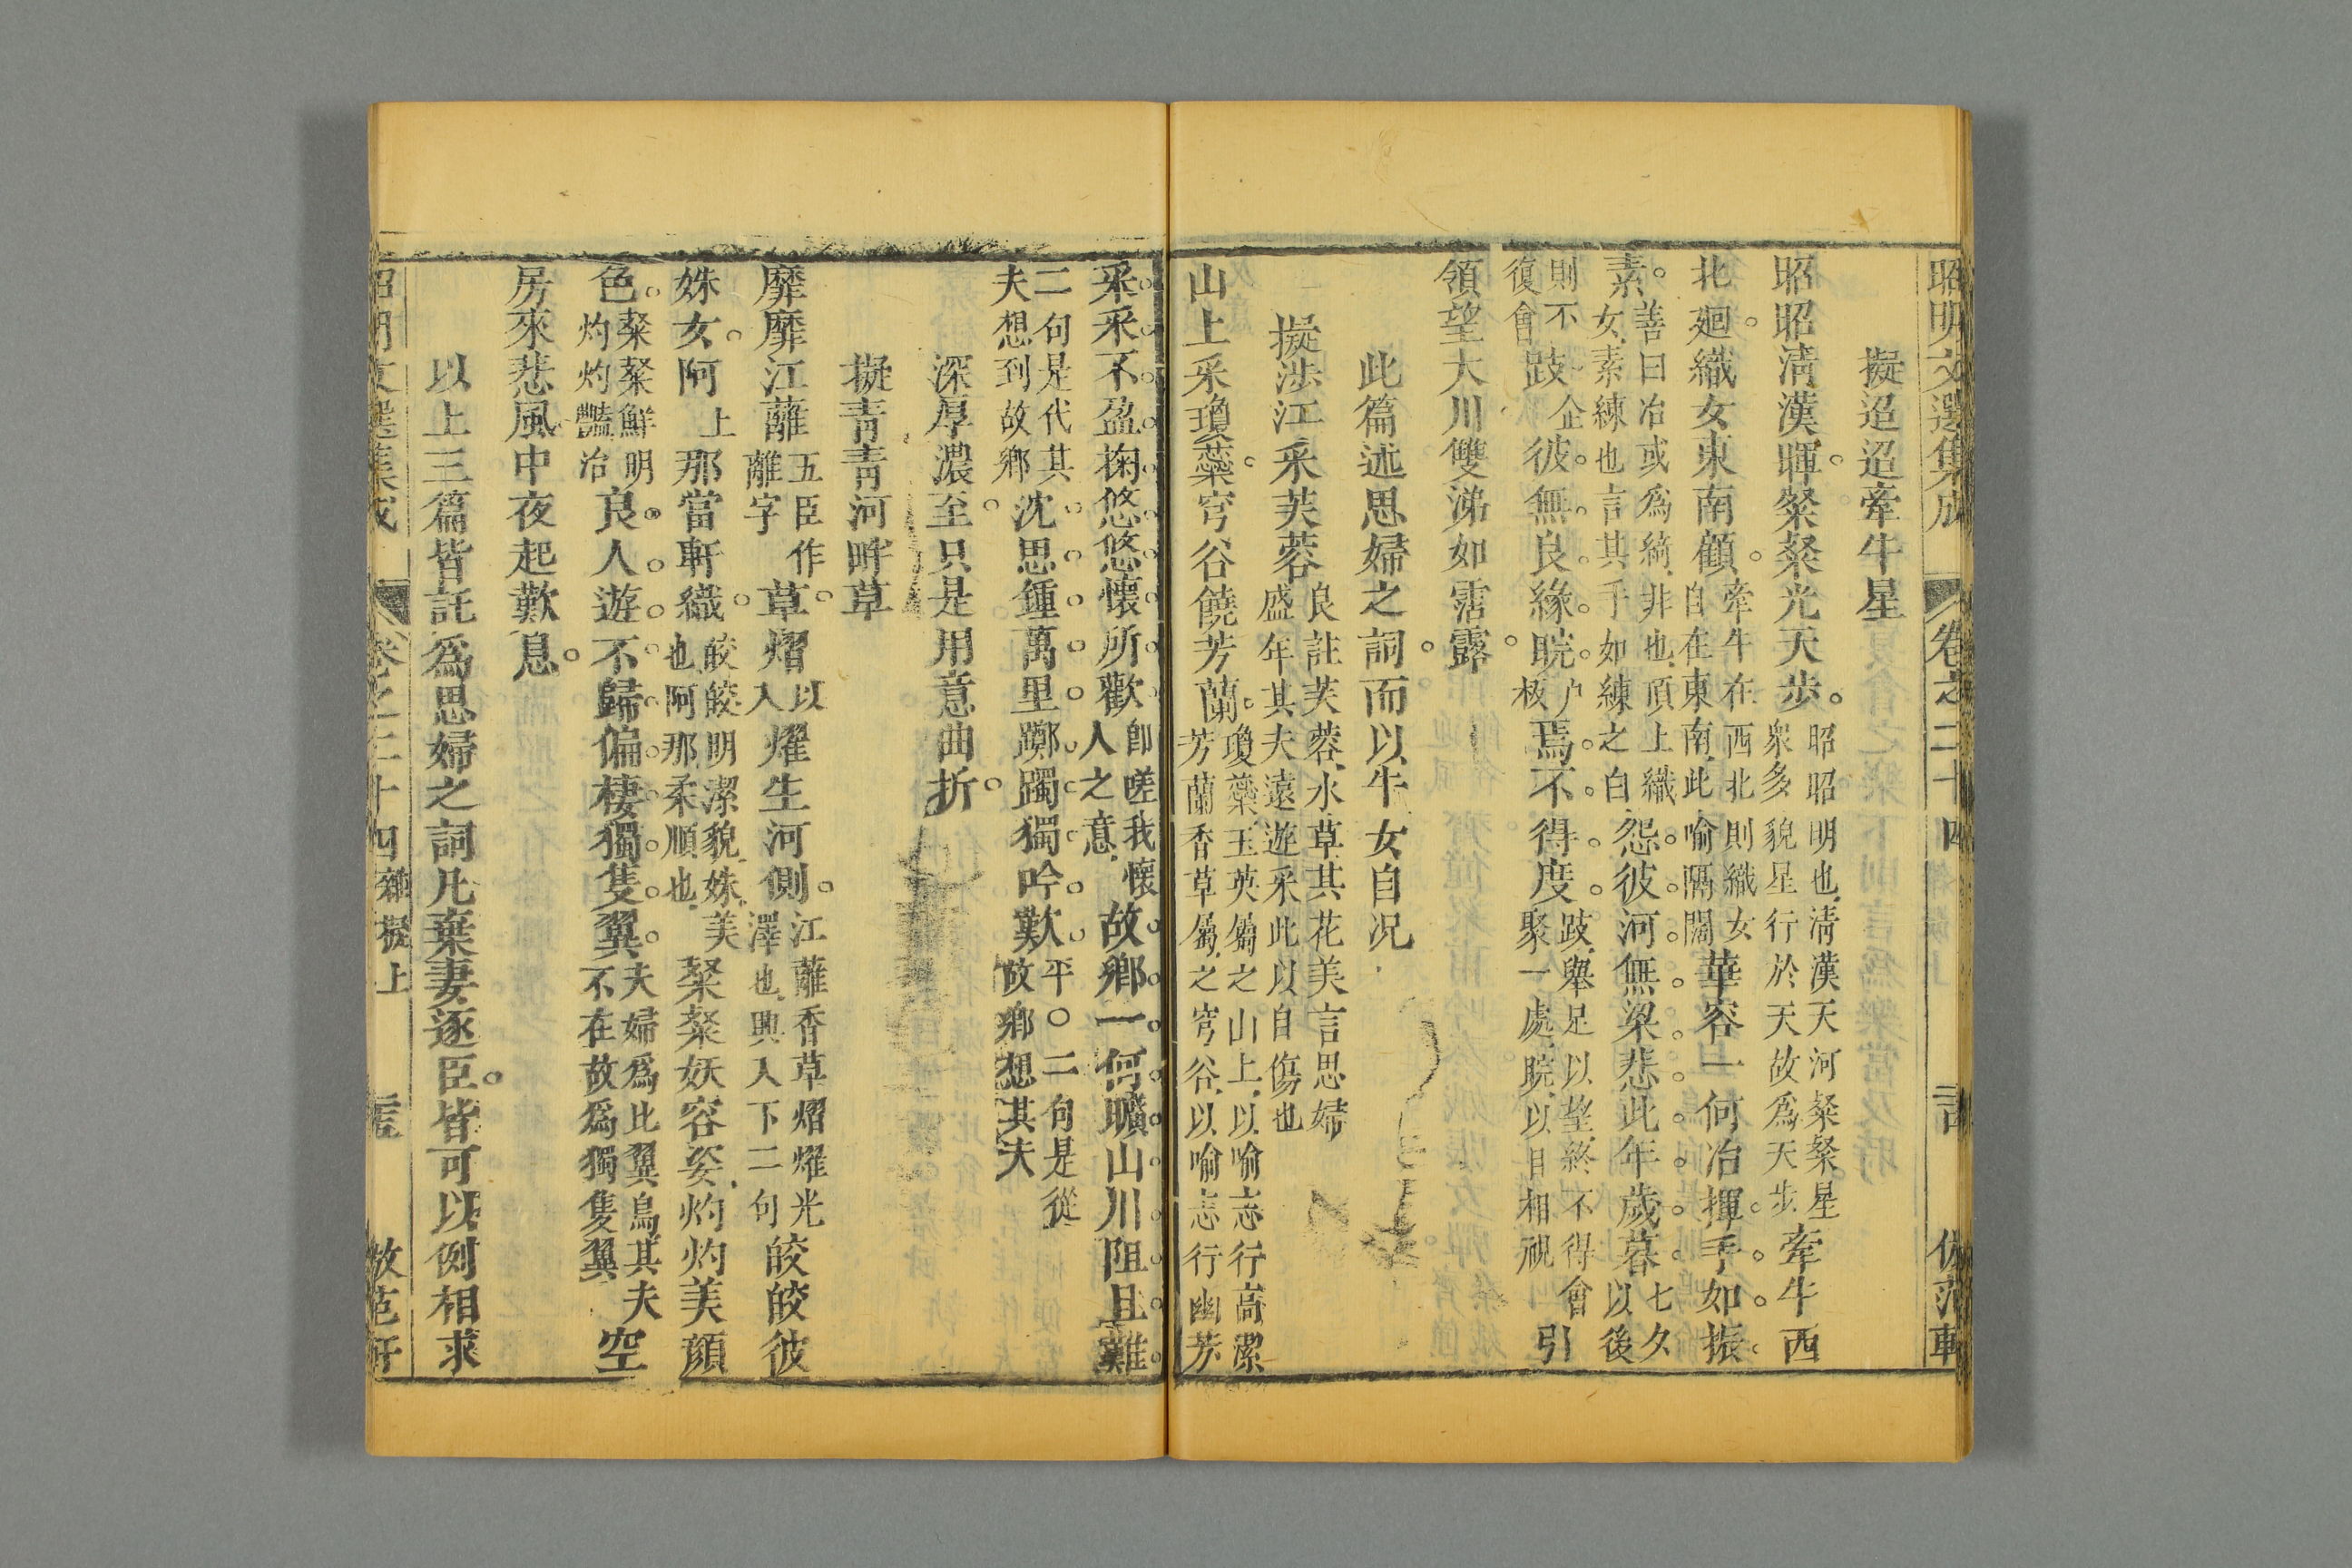 昭明文選集成 卷之二十四
擬迢迢牽牛星
昭昭清漢暉粲粲光天步昭昭明也清漢天河粲粲星衆多貌星行於天故爲天步牽牛西
北廻織女東南顧牽牛在西北則織女自在東南此喻隔闊華容一何冶揮手如振
素善曰冶或爲綺非也頂上織女素練也言其手如練之白怨彼河無梁悲此年歲暮七夕以後
則不復會跂企彼無良緣睆户板焉不得度跂舉足以望終不得會聚一處睆以目相視引
領望大川雙涕如霑露
此篇述思婦之詞而以牛女自况
擬涉江采芙蓉良註芙蓉水草其花美言思婦盛年其夫遠遊采此以自傷也
山上采瓊蘂穹谷饒芳蘭瓊蘂玉英屬之山上以喻志行高潔芳蘭香草屬之穹谷以喻志行幽芳
采采不盈掬悠悠懷所歡卽嗟我懷人之意故鄉一何曠山川阻且難
二句是代其夫想到故鄉沈思鍾萬里躑躅獨吟歎平○二句是從故鄉想其夫
深厚濃至只是用意曲折
擬青青河畔草
靡靡江蘺五臣作離字草熠以入燿生河側江蘺香草熠燿光澤也興入下二句皎皎彼
姝女阿上那當軒織皎皎明潔貌姝美也阿那柔順也粲粲妖容姿灼灼美顔
色粲粲鮮明灼灼豔冶良人遊不歸偏棲獨隻翼夫婦爲比翼鳥其夫不在故爲獨隻翼空
房來悲風中夜起歎息
以上三篇皆託爲思婦之詞凡棄妻逐臣皆可以例相求
昭明文選集成 卷之二十四 雜擬上